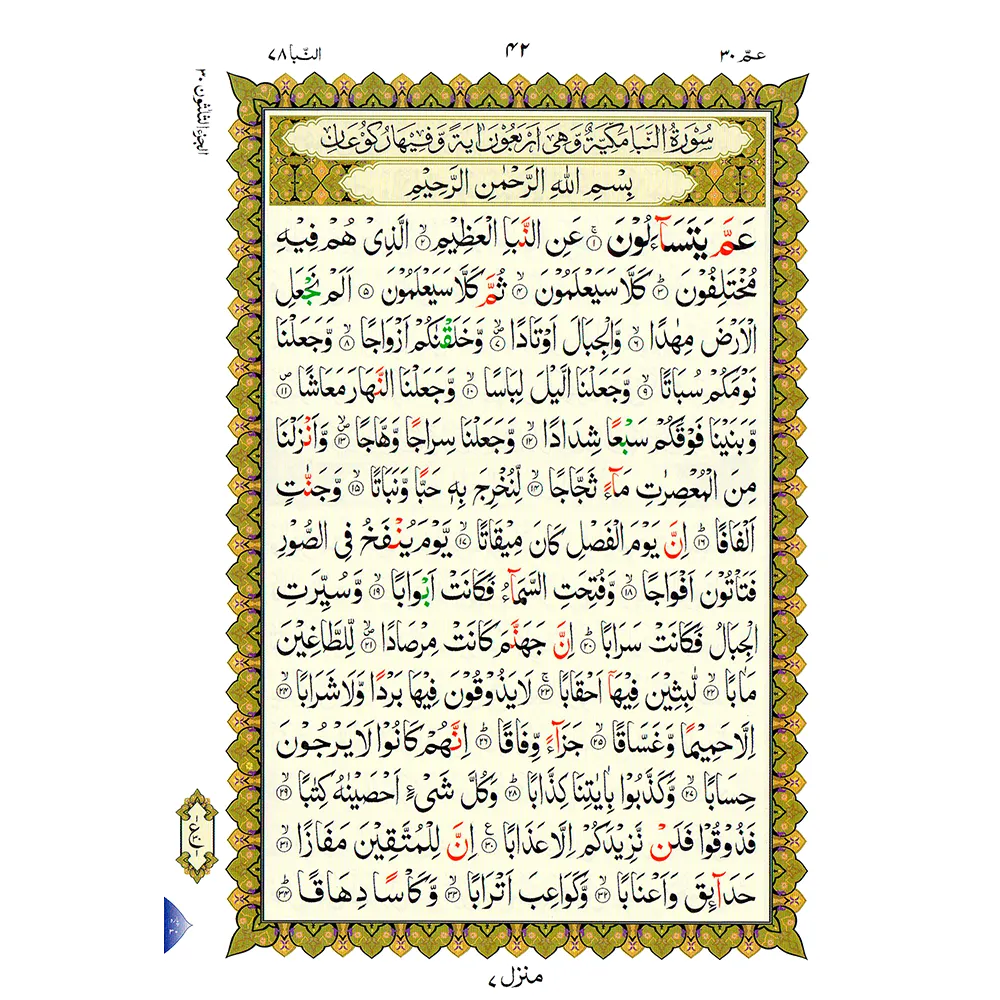 عمّ ٣٠
٤٢
النّبا ٧٨
الجزء الثلثون ٣٠
سُوْرَةُ النَّبَاِ مَكِّيَّةٌ وَّهِىَ اَرْبَعُوْنَ اٰيَةً وَّفِيْهَا رُكُوْعَانِ
بِسْمِ اللّٰهِ الرَّحْمٰنِ الرَّحِيْمِ
عَمَّ يَتَسَآءَلُوْنَ ۚ‏﴿۱﴾ عَنِ النَّبَاِ الْعَظِيْمِ ۙ‏﴿۲﴾ الَّذِىْ هُمْ فِيْهِ
مُخْتَلِفُوْنَ ؕ‏﴿۳﴾ كَلَّا سَيَعْلَمُوْنَ ۙ‏﴿۴﴾ ثُمَّ كَلَّا سَيَعْلَمُوْنَ ﴿۵﴾ اَلَمْ نَجْعَلِ
الْاَرْضَ مِهٰدًا ۙ‏﴿۶﴾ وَّالْجِبَالَ اَوْتَادًا ۪ۙ‏﴿۷﴾ وَّخَلَقْنٰكُمْ اَزْوَاجًا ۙ‏﴿۸﴾ وَّجَعَلْنَا
نَوْمَكُمْ سُبَاتًا ۙ‏﴿۹﴾ وَّجَعَلْنَا الَّيْلَ لِبَاسًا ۙ‏﴿۱۰﴾ وَّجَعَلْنَا النَّهَارَ مَعَاشًا ۪‏﴿۱۱﴾
وَّبَنَيْنَا فَوْقَكُمْ سَبْعًا شِدَادًا ۙ‏﴿۱۲﴾ وَّجَعَلْنَا سِرَاجًا وَّهَّاجًا ۪ۙ‏﴿۱۳﴾ وَّاَنْزَلْنَا
مِنَ الْمُعْصِرٰتِ مَآءً ثَجَّاجًا ۙ‏﴿۱۴﴾ لِّنُخْرِجَ بِهٖ حَبًّا وَّنَبَاتًا ۙ‏﴿۱۵﴾ وَّجَنّٰتٍ
اَلْفَافًا ؕ‏﴿۱۶﴾ اِنَّ يَوْمَ الْفَصْلِ كَانَ مِيْقَاتًا ۙ‏﴿۱۷﴾ يَّوْمَ يُنْفَخُ فِى الصُّوْرِ
فَتَاْتُوْنَ اَفْوَاجًا ۙ‏﴿۱۸﴾ وَّفُتِحَتِ السَّمَآءُ فَكَانَتْ اَبْوَابًا ۙ‏﴿۱۹﴾ وَّسُيِّرَتِ
الْجِبَالُ فَكَانَتْ سَرَابًا ؕ‏﴿۲۰﴾ اِنَّ جَهَنَّمَ كَانَتْ مِرْصَادًا ۪ۙ‏﴿۲۱﴾ لِّلطَّاغِيْنَ
مَاٰبًا ۙ‏﴿۲۲﴾ لّٰبِثِيْنَ فِيْهَاۤ اَحْقَابًا ۚ‏﴿۲۳﴾ لَا يَذُوْقُوْنَ فِيْهَا بَرْدًا وَّلَا شَرَابًا ۙ‏﴿۲۴﴾
اِلَّا حَمِيْمًا وَّغَسَّاقًا ۙ‏﴿۲۵﴾ جَزَآءً وِّفَاقًا ؕ‏﴿۲۶﴾ اِنَّهُمْ كَانُوْا لَا يَرْجُوْنَ
حِسَابًا ۙ‏﴿۲۷﴾ وَّكَذَّبُوْا بِاٰيٰتِنَا كِذَّابًا ؕ‏﴿۲۸﴾ وَكُلَّ شَىْءٍ اَحْصَيْنٰهُ كِتٰبًا ۙ‏﴿۲۹﴾
فَذُوْقُوْا فَلَنْ نَّزِيْدَكُمْ اِلَّا عَذَابًا ‏﴿۳۰﴾ اِنَّ لِلْمُتَّقِيْنَ مَفَازًا ۙ‏﴿۳۱﴾
حَدَآئِقَ وَاَعْنَابًا ۙ‏﴿۳۲﴾ وَّكَوَاعِبَ اَتْرَابًا ۙ‏﴿۳۳﴾ وَّكَاْسًا دِهَاقًا ؕ‏﴿۳۴﴾
پاره ٣٠
منزل ٧